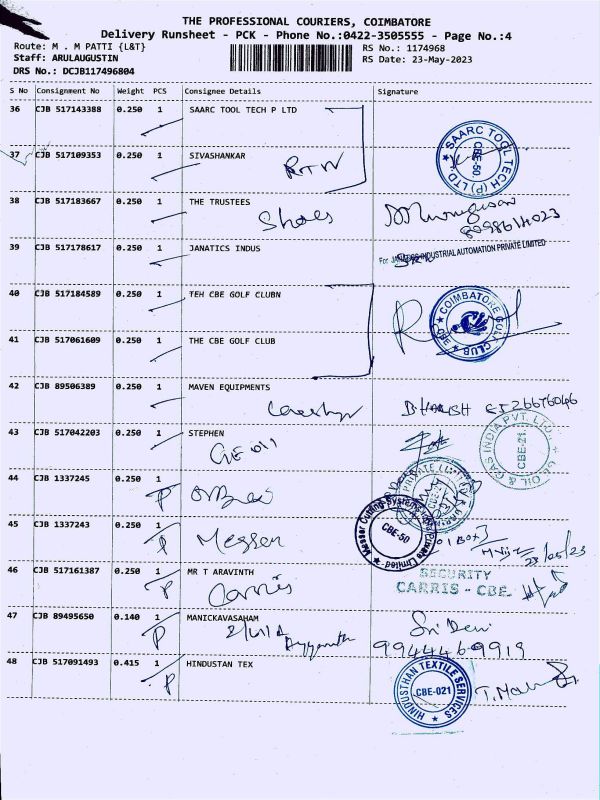 THE PROFESSIONAL COURIERS, COIMBATORE
Delivery Runsheet - PCK - Phone No.:0422-3505555 - Page No.:4
Route: M . M PATTI {L&T}
RS No.: 1174968
Staff: ARULAUGUSTIN
RS Date: 23-May-2023
DRS No.: DCJB117496804
S No Consignment No Weight PCS Consignee Details Signature
36 CJB 517143388 0.250 1 SAARC TOOL TECH P LTD
SAARC TOOL TECH (P) LTD. CBE-50
37 CJB 517109353 0.250 1 SIVASHANKAR
RTW
38 CJB 517183667 0.250 1 THE TRUSTEES
Shoes
39 CJB 517178617 0.250 1 JANATICS INDUS
For JANATICS INDUSTRIAL AUTOMATION PRIVATE LIMITED
40 CJB 517184589 0.250 1 TEH CBE GOLF CLUBN
COIMBATORE GOLF CLUB
41 CJB 517061609 0.250 1 THE CBE GOLF CLUB
42 CJB 89506389 0.250 1 MAVEN EQUIPMENTS
43 CJB 517042203 0.250 1 STEPHEN
GE Oil
OIL & GAS INDIA PVT. LTD. CBE-21
44 CJB 1337245 0.250 1
P
PRIVATE LIMITED
45 CJB 1337243 0.250 1
P Messer
Messer Cutting Systems India Private Limited CBE-50
23/05/23
46 CJB 517161387 0.250 1 MR T ARAVINTH
P Carris
SECURITY
CARRIS - CBE.
47 CJB 89495650 0.140 1 MANICKAVASAHAM
P
Sri Devi
9944469919
48 CJB 517091493 0.415 1 HINDUSTAN TEX
P
HINDUSTHAN TEXTILE SERVICES CBE-021